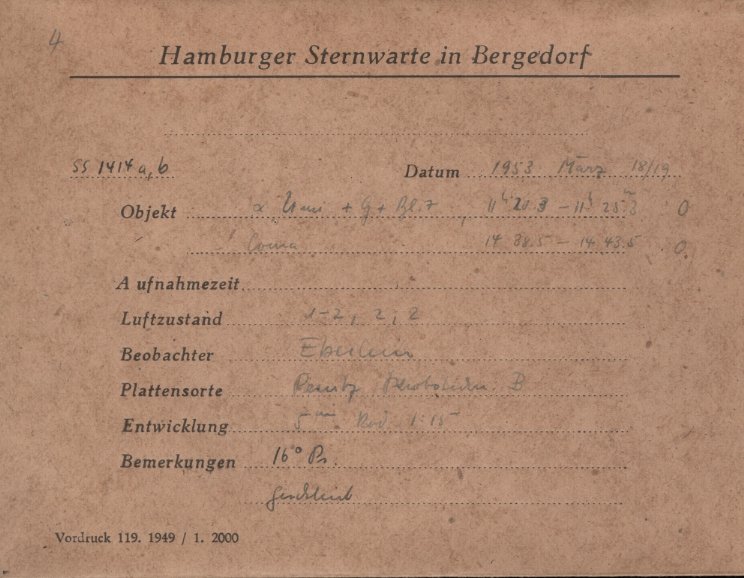 4
Hamburger Sternwarte in Bergedorf
SS 1414 a, b
Datum 1953 März 18/19
Objekt α + G + Bl. 7, 11h 20.3 – 11h 25.3 0
Coma 14 38.5 – 14 43.5 0
Aufnahmezeit
Luftzustand 1-2, 2, 2
Beobachter
Plattensorte Perutz B
Entwicklung 5 min Rod. 1:15
Bemerkungen 16° Pr.
Vordruck 119. 1949 / 1. 2000